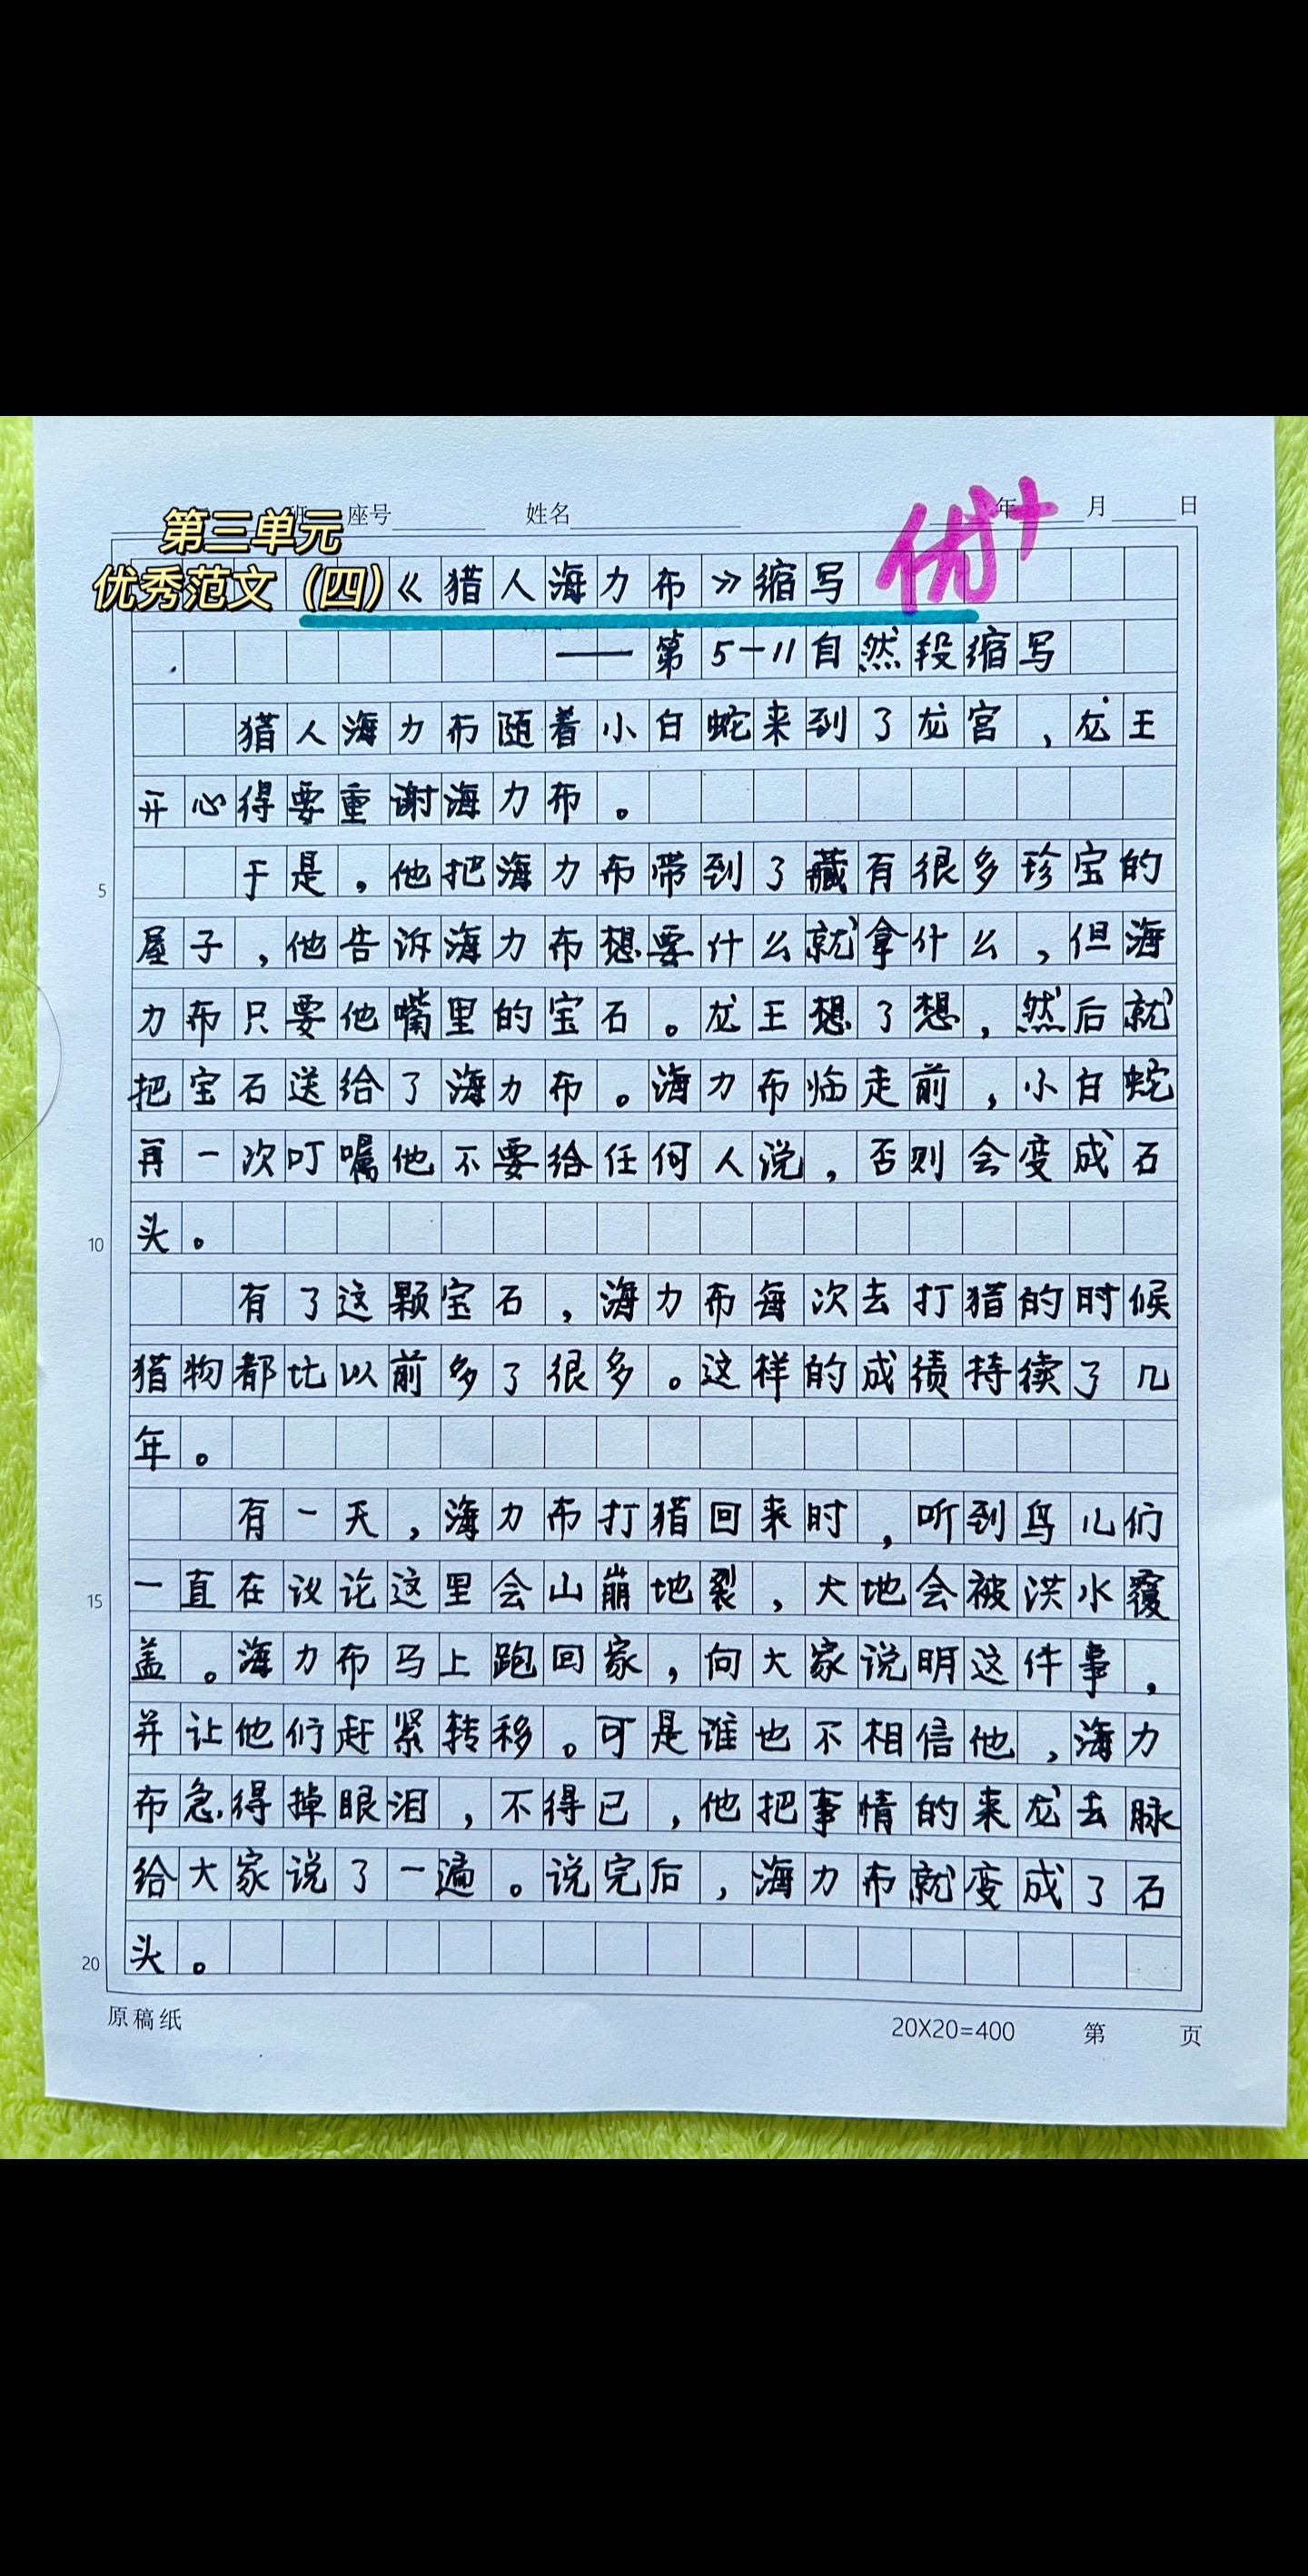 班 座号 姓名 年 月 日
第三单元
优秀范文（四）
《猎人海力布》缩写
优+
——第5—11自然段缩写
猎人海力布随着小白蛇来到了龙宫，龙王
开心得要重谢海力布。
5
于是，他把海力布带到了藏有很多珍宝的
屋子，他告诉海力布想要什么就拿什么，但海
力布只要他嘴里的宝石。龙王想了想，然后就
把宝石送给了海力布。海力布临走前，小白蛇
再一次叮嘱他不要给任何人说，否则会变成石
10
头。
有了这颗宝石，海力布每次去打猎的时候
猎物都比以前多了很多。这样的成绩持续了几
年。
有一天，海力布打猎回来时，听到鸟儿们
15
一直在议论这里会山崩地裂，大地会被洪水覆
盖。海力布马上跑回家，向大家说明这件事，
并让他们赶紧转移。可是谁也不相信他，海力
布急得掉眼泪，不得已，他把事情的来龙去脉
给大家说了一遍。说完后，海力布就变成了石
20
头。
原稿纸 20X20=400 第 页